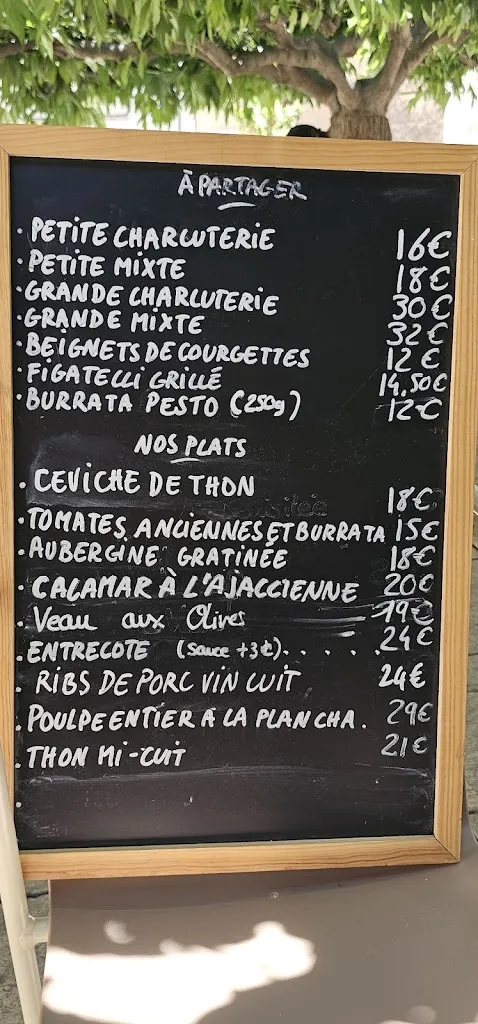 À PARTAGER
· PETITE CHARCUTERIE 16€
· PETITE MIXTE 18€
· GRANDE CHARCUTERIE 30€
· GRANDE MIXTE 32€
· BEIGNETS DE COURGETTES 12€
· FIGATELLI GRILLÉ 14,50€
· BURRATA PESTO (250g) 12€
NOS PLATS
· CEVICHE DE THON 18€
· TOMATES ANCIENNES ET BURRATA 15€
· AUBERGINE GRATINÉE 18€
· CALAMAR À L'AJACCIENNE 20€
· Veau aux Olives 19€
· ENTRECOTE (Sauce +3€). . . . . 24€
. RIBS DE PORC VIN CUIT 24€
. POULPE ENTIER A LA PLANCHA . 29€
. THON MI-CUIT 21€